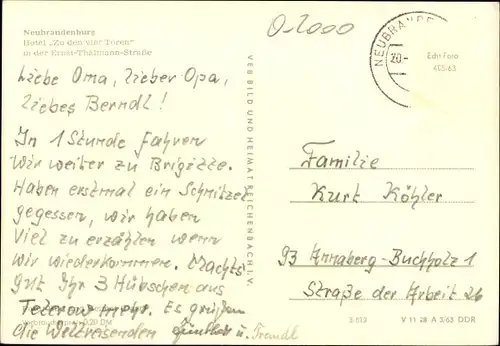 Neubrandenburg
Hotel „Zu den vier Toren"
in der Ernst-Thälmann-Straße
Liebe Oma, lieber Opa,
liebes Berndl!
In 1 Stunde fahren
wir weiter zu Brigitte.
Haben erstmal ein Schnitzel
gegessen, wir haben
viel zu erzählen wenn
wir wiederkommen. Machts
gut Ihr 3 Hübschen aus
Teterow mehr. Es grüßen
die Weltreisenden Günther u.
0,20 DM
VEB BILD UND HEIMAT REICHENBACH I. V.
0-2000
NEUBRANDE
20.-
Echt Foto
408/63
Familie
Kurt Köhler
93 Annaberg-Buchholz 1
Straße der Arbeit 26
V 11 28 A 3/63 DDR